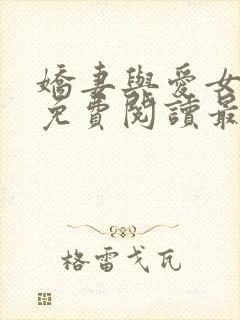 嬌妻與愛女
免費閱讀最
格雷戈瓦